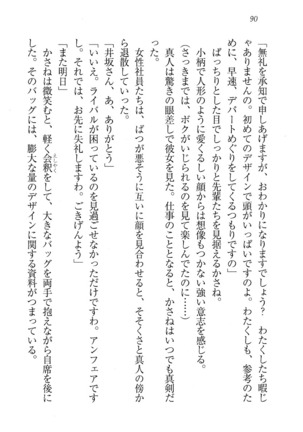 90
「無礼を承知で申しあげますが、おわかりになりますでしょう？　わたくしたち暇じ
ゃありませんの。初めてのデザインで頭がいっぱいですのよ。わたくしも、参考のた
めに、早速、デパートめぐりをしてくるつもりですの」
ぱっちりとした目でしっかりと先輩たちを見据えるかさね。
小柄で人形のように愛くるしい顔からは想像もつかない強い意志を感じる。
（さっきまでは、ボクがいじられるのを見て楽しんでたのに……）
真人は驚きの眼差しで彼女を見た。仕事のこととなると、かさねはいつでも真剣だ
った。
女性社員たちは、ばつが悪そうに互いに顔を見合わせると、そそくさと真人の傍か
ら退散していった。
「井坂さん、あ、ありがとう」
「いいえ。ライバルが困っているのを見過ごせなかっただけですわ。アンフェアです
し。それでは、お先に失礼しますわ。ごきげんよう」
「また明日」
かさねは微笑むと、軽く会釈をして、大きなバッグを両手で抱えながら自席を後に
した。そのバッグには、膨大な量のデザインに関する資料がつまっている。